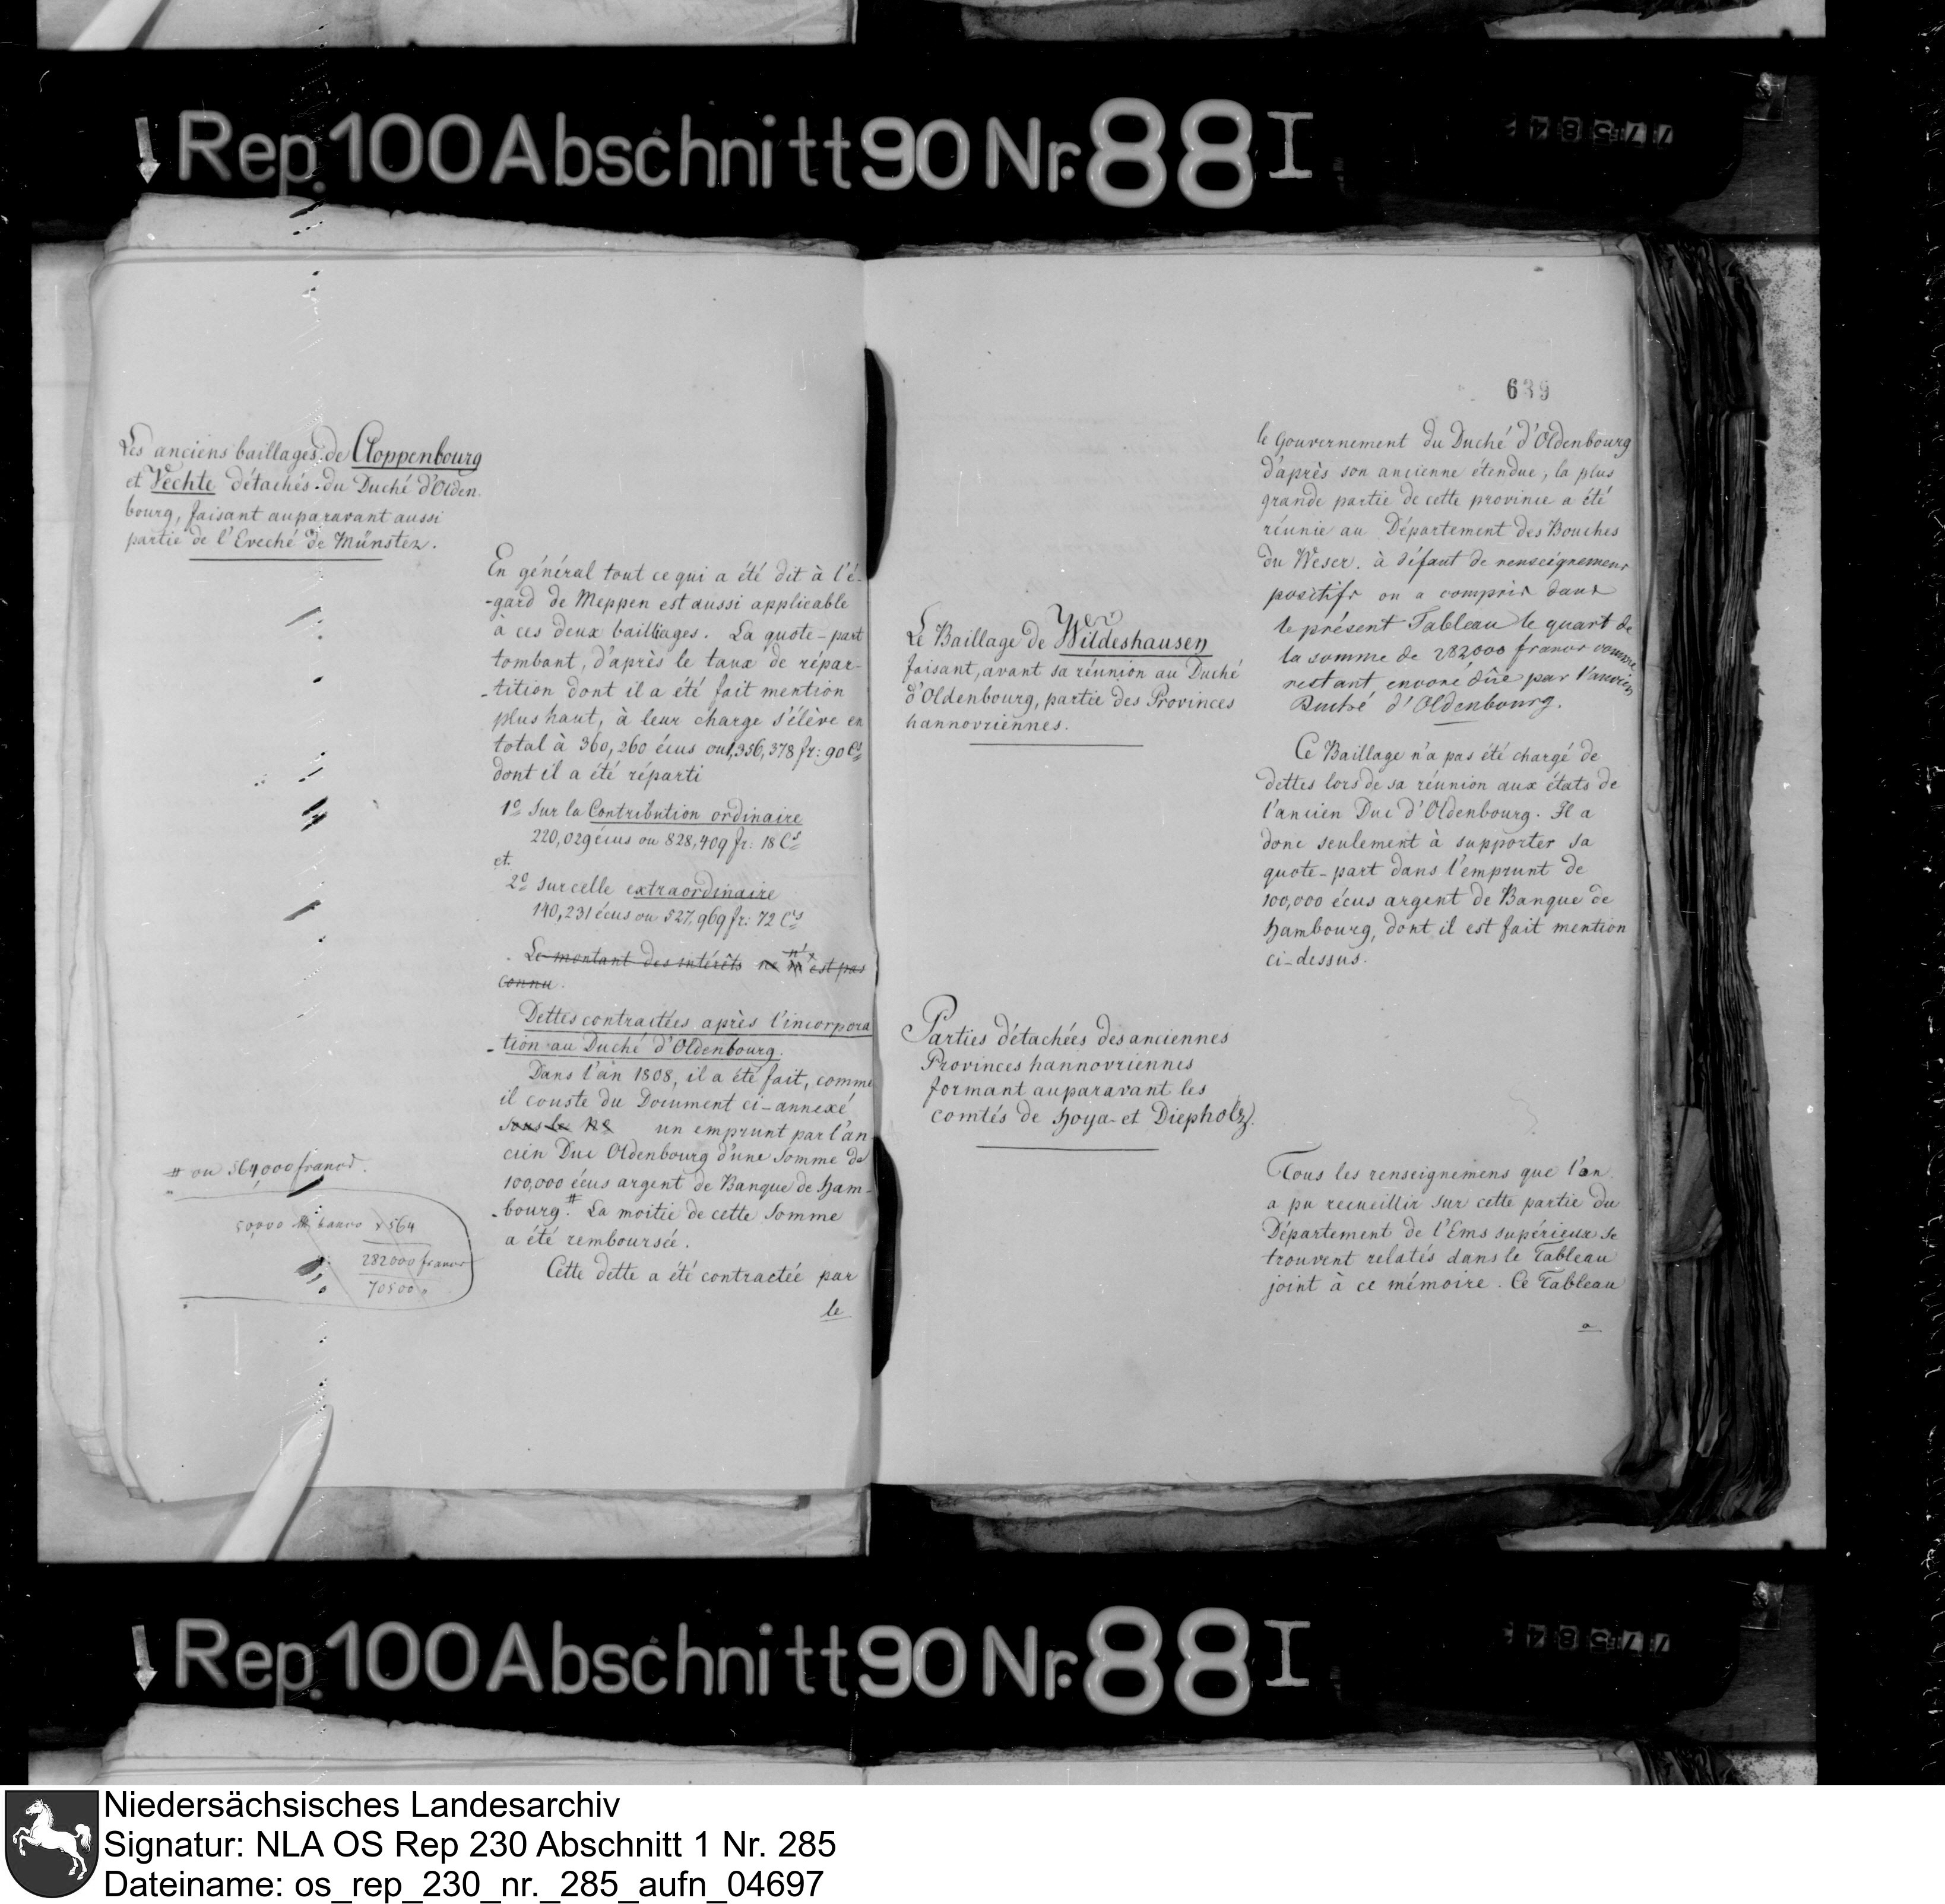 Rep. 100 Abschnitt 90 Nr. 88 I
Les anciens baillages de Cloppenbourg
et Vechte détachés du Duché d'Olden
bourg, faisant auparavant aussi
partie de l'Eveché de Münster.
En général tout ce qui a été dit à l'é-
-gard de Meppen est aussi applicable
à ces deux bailliages. La quote-part
tombant, d'après le taux de répar-
-tition dont il a été fait mention
plus haut, à leur charge s'élève en
total à 360,260 écus ou 1,356,378 fr: 90 Cs
dont il a été réparti
1o Sur la Contribution ordinaire
220,029 écus ou 828,409 fr: 18 Cs
et
2o Sur celle extraordinaire
140,231 écus ou 527,969 fr: 72 Cs
Le montant des intérêts ne m'est pas
connu.
Dettes contractées après l'incorpora
-tion au Duché d'Oldenbourg.
Dans l'an 1808, il a été fait, comme
il conste du Document ci-annexé
sous le No un emprunt par l'an
cien Duc Oldenbourg d'une Somme de
100,000 écus argent de Banque de Ham-
-bourg. # La moitié de cette Somme
a été remboursée.
Cette dette a été contractée par
le
# ou 564,000 francs.
50,000 banco x 564
282000 francs
70500
639
le Gouvernement du Duché d'Oldenbourg
d'après son ancienne étendue, la plus
grande partie de cette province a été
réunie au Département des Bouches
du Weser. à défaut de renseignemens
positifs on a compris dans
le présent Tableau le quart de
la somme de 282000 francs comme
restant encore dûe par l'ancien
Duché d'Oldenbourg.
Le Baillage de Wildeshausen
faisant, avant sa réunion au Duché
d'Oldenbourg, partie des Provinces
hannovriennes.
Ce Baillage n'a pas été chargé de
dettes lors de sa réunion aux états de
l'ancien Duc d'Oldenbourg. Il a
donc seulement à supporter sa
quote-part dans l'emprunt de
100,000 écus argent de Banque de
Hambourg, dont il est fait mention
ci-dessus.
Parties détachées des anciennes
Provinces hannovriennes
formant auparavant les
comtés de Hoya et Diepholz.
Tous les renseignemens que l'on
a pu recueillir sur cette partie du
Département de l'Ems supérieur se
trouvent relatés dans le Tableau
joint à ce mémoire. Ce Tableau
a
Rep. 100 Abschnitt 90 Nr. 88 I
Niedersächsisches Landesarchiv
Signatur: NLA OS Rep 230 Abschnitt 1 Nr. 285
Dateiname: os_rep_230_nr._285_aufn_04697